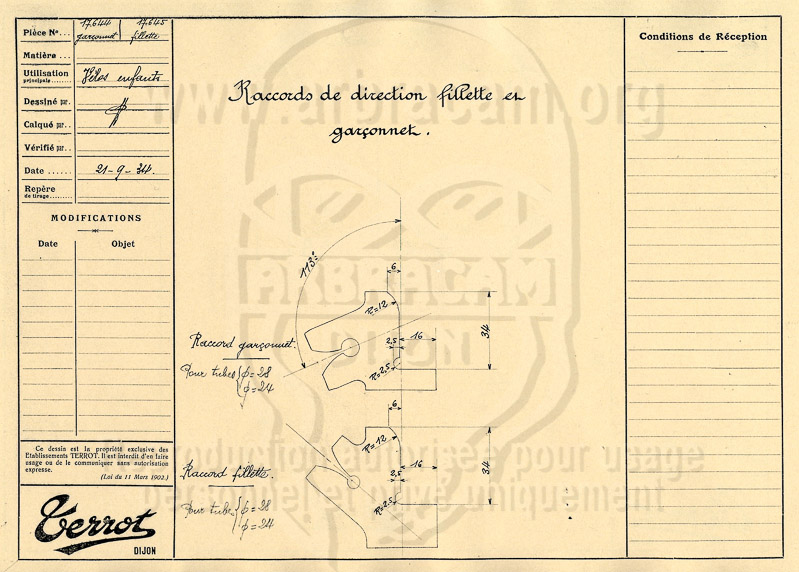 Pièce N°... 17.644 17.645
garçonnet fillette
Matière ...
Utilisation
principale...... Vélos enfants
Dessiné par.
Calqué par..
Vérifié par..
Date ...... 21-9-34.
Repère
de tirage.......
MODIFICATIONS
Date Objet
Ce dessin est la propriété exclusive des
Etablissements TERROT. Il est interdit d'en faire
usage ou de le communiquer sans autorisation
expresse.
(Loi du 11 Mars 1902.)
Terrot
DIJON
Raccords de direction fillette et
garçonnet.
113°
6
R=12
2,5
16
34
R=2,5
Raccord garçonnet.
Pour tubes φ=28
φ=24
6
R=12
16
2,5
34
R=2,5
Raccord fillette.
Pour tubes φ=28
φ=24
Conditions de Réception
www.arbracam.org
ARBRACAM
DIJON
Reproduction autorisée pour usage
personnel et privé uniquement